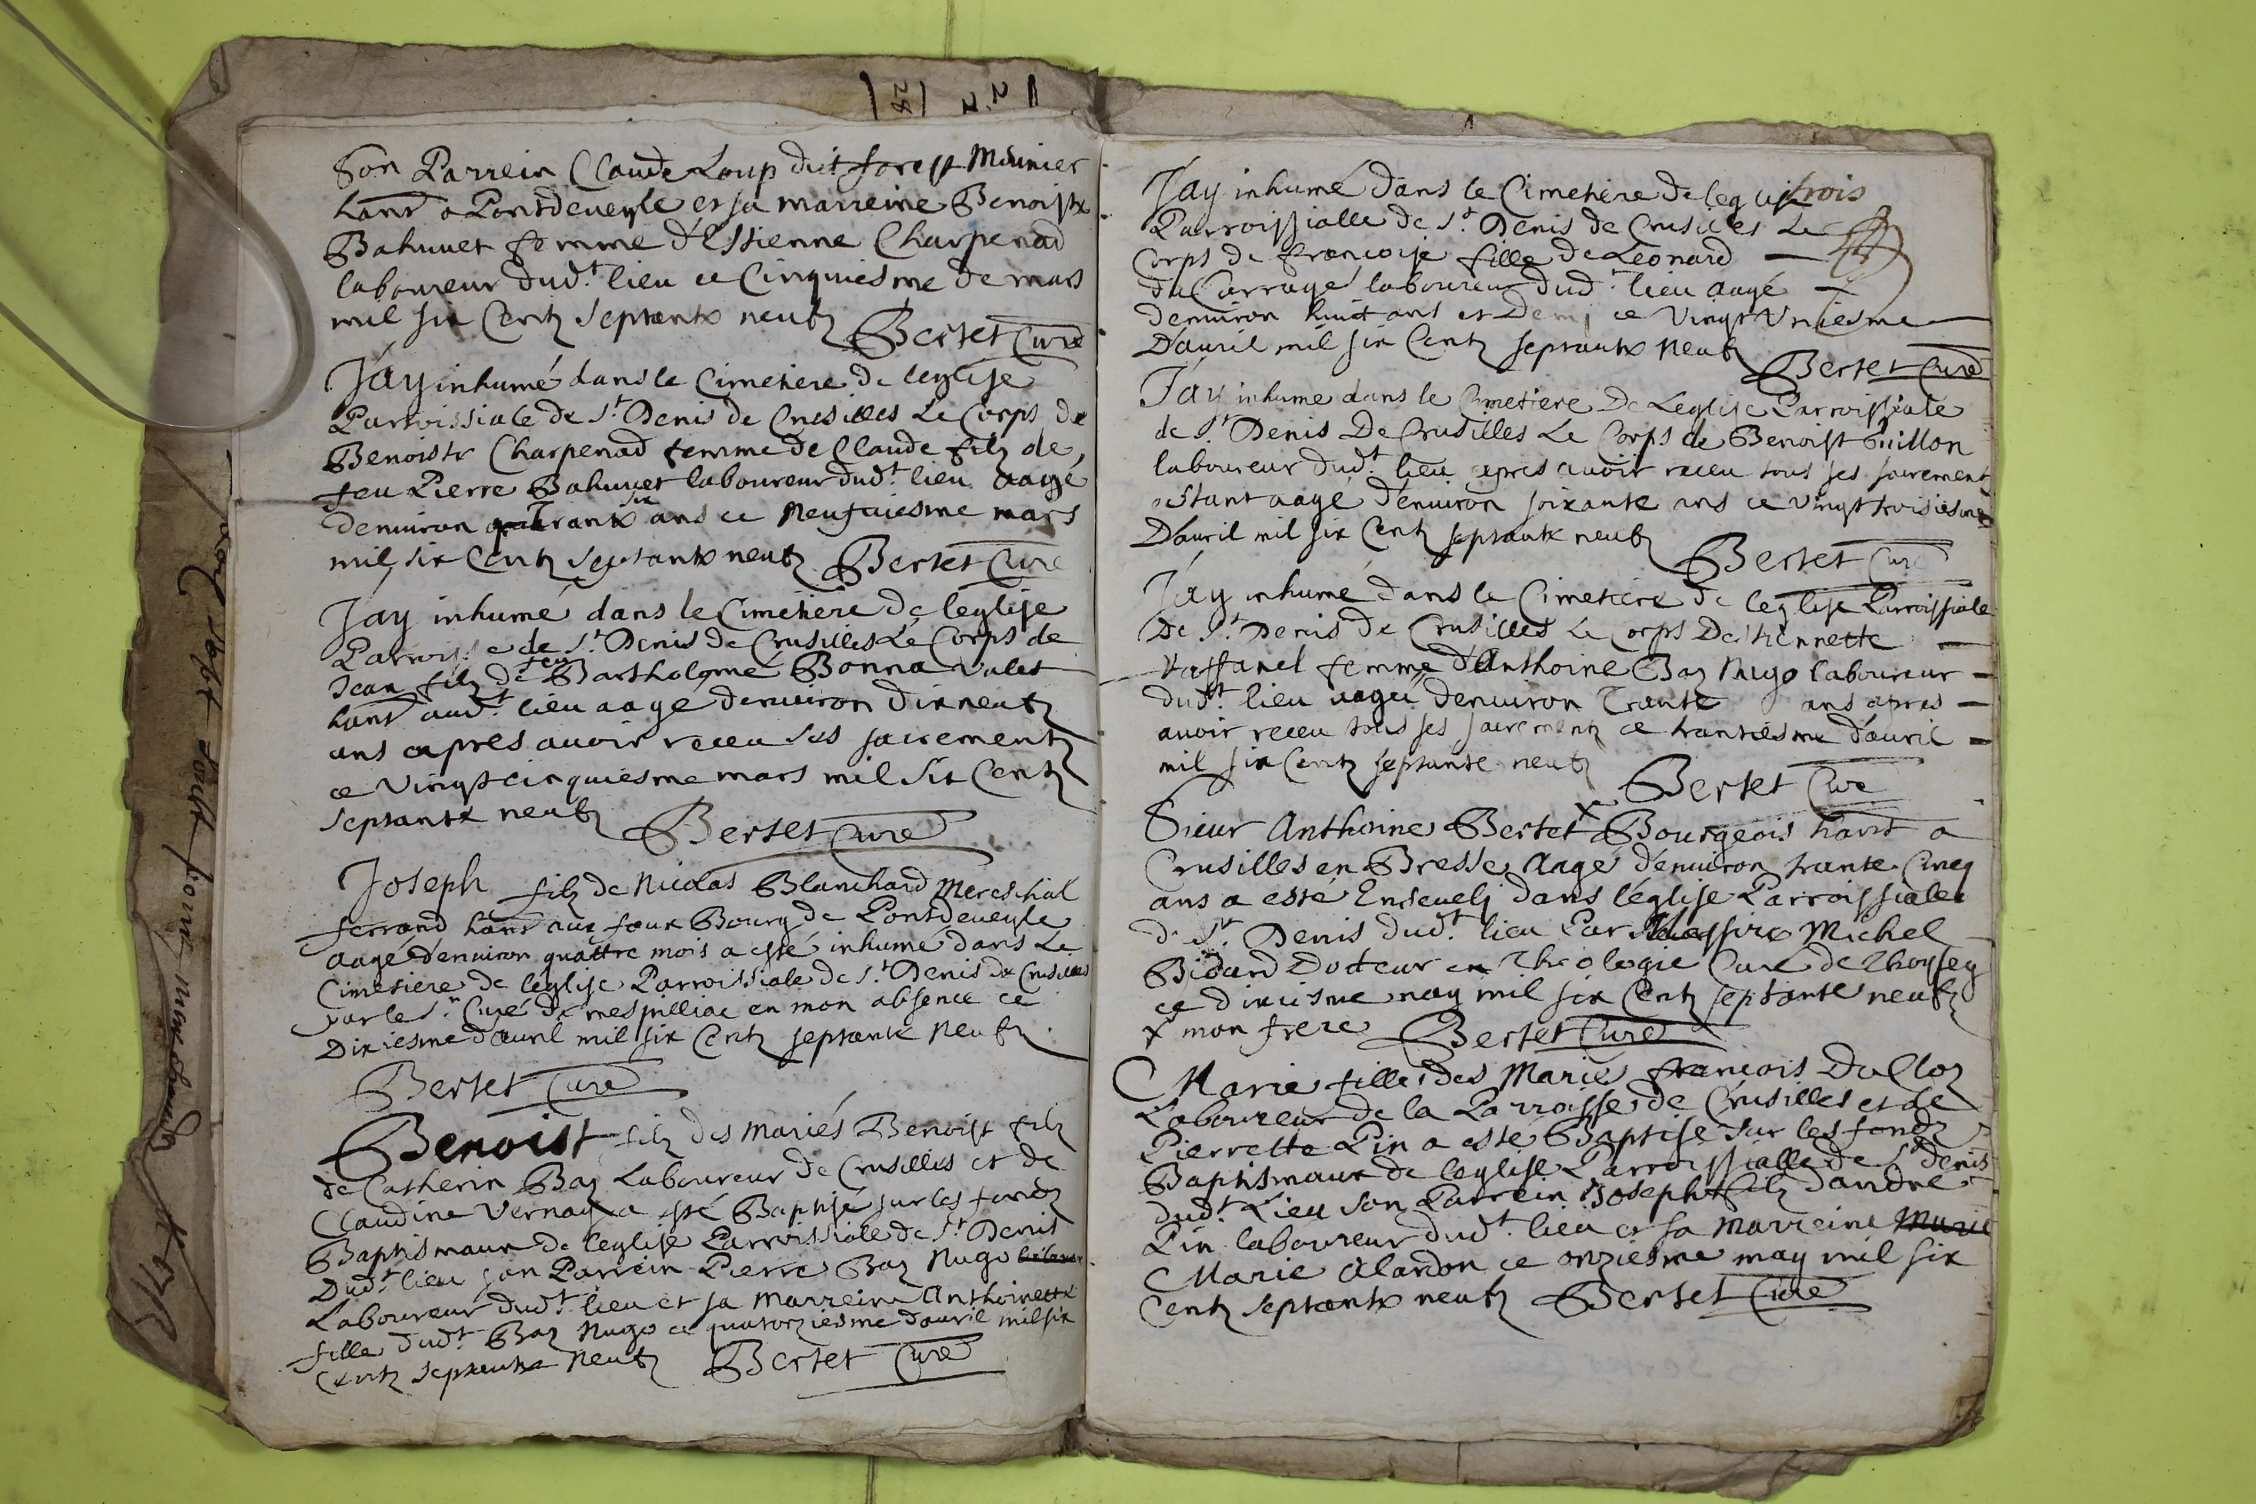 Son Parrein Claude Loup dit forest Meunier
hant a Pontdeueyle et sa marreine Benoiste
Bahuuet femme d'Estienne Charpenad
laboureur dud.t lieu ce Cinquiesme de mars
mil six Centz septante neufz Bertet Curé
Jay inhumé dans le Cimetiere de leglise
Parroissiale de S.t Denis de Crusilles Le Corps de
Benoiste Charpenad femme de Claude filz de
feu Pierre Bahuuet laboureur dud.t lieu aagé
denuiron quatrante six ans ce Neufuiesme mars
mil six Centz septante neufz Bertet Curé
Jay inhumé dans le Cimetiere de leglise
Parroisse de S.t Denis de Crusilles Le Corps de
Jean filz de feu Bartholomé Bonna valet
hant aud.t lieu aagé denuiron dixneufz
ans apres auoir receu ses sacrementz
ce Vingtcinquiesme mars mil six Centz
septante neufz Bertet Curé
Joseph filz de Nicolas Blanchard Mareschal
ferrand hant aux faux Bourg de Pontdeueyle
aagé denuiron quattre mois a esté inhumé dans Le
Cimetiere de leglise Parroissiale de S.t Denis de Crusilles
par le S.r Curé de mespilliac en mon absence ce
Dixiesme d'auril mil six Centz septante Neufz
Bertet Curé
Benoist filz des mariés Benoist filz
de Catherin Baz Laboureur de Crusilles et de
Claudine Vernay a esté Baptisé sur les fondz
Baptismaux de leglise Parroissiale de S.t Denis
Dud.t lieu son Parrein Pierre Baz Nugo
Laboureur dud.t lieu et sa Marreine Anthoinette
fille dud.t Baz Nugo ce quatorziesme dauril mil six
Centz septante Neufz Bertet Curé
trois
Jay inhumé dans le Cimetiere de leglise
Parroissialle de S.t Denis de Crusilles Le
Corps de francoise fille de Leonard
du Carragé laboureur dud.t lieu aagé
denuiron huict ans et Demj ce Vingt Vniesme
D'auril mil six Centz septante Neufz
Bertet Curé
Jay inhumé dans le Cimetiere De Leglise Parroissiale
de S.t Denis De Crusilles Le Corps de Benoist Guillon
laboureur dud.t lieu apres auoir receu tous ses sacrementz
estant aagé d'enuiron soixante ans ce vingt troisiesme
D'auril mil six Centz septante neufz
Bertet Curé
Jay inhumé dans le Cimetiere de leglise Parroissiale
De S.t Denis de Crusilles Le Corps De Thiennette
Vassanel femme d'Anthoine Baz Nugo laboureur
dud.t lieu aagée denuiron Trante ans apres
auoir receu tous ses sacrementz ce trantiesme d'auril
mil six Centz septante neufz
Bertet Curé
Sieur Anthoine Bertet x Bourgeois hant a
Crusilles en Bresse Aagé d'enuiron trante Cinq
ans a esté Enseuelj dans l'église Parroissiale
de S.t Denis dud.t lieu Par Messire Michel
Bidard Docteur en Theologie Curé de Thoissey
ce dixiesme may mil six Centz septante neufz
x mon frere Bertet Curé
Marie fille des Mariés françois DuCloz
Laboureur de la Parroisse de Crusilles et de
Pierrette Pin a esté Baptisé sur les fondz
Baptismaux de leglise Parroissialle de S.t denis
dud.t Lieu son Parrein Joseph filz d'andre
Pin laboureur dud.t lieu et sa marreine Marie
Marie Alardon ce onziesme may mil six
Centz septante neufz Bertet Curé